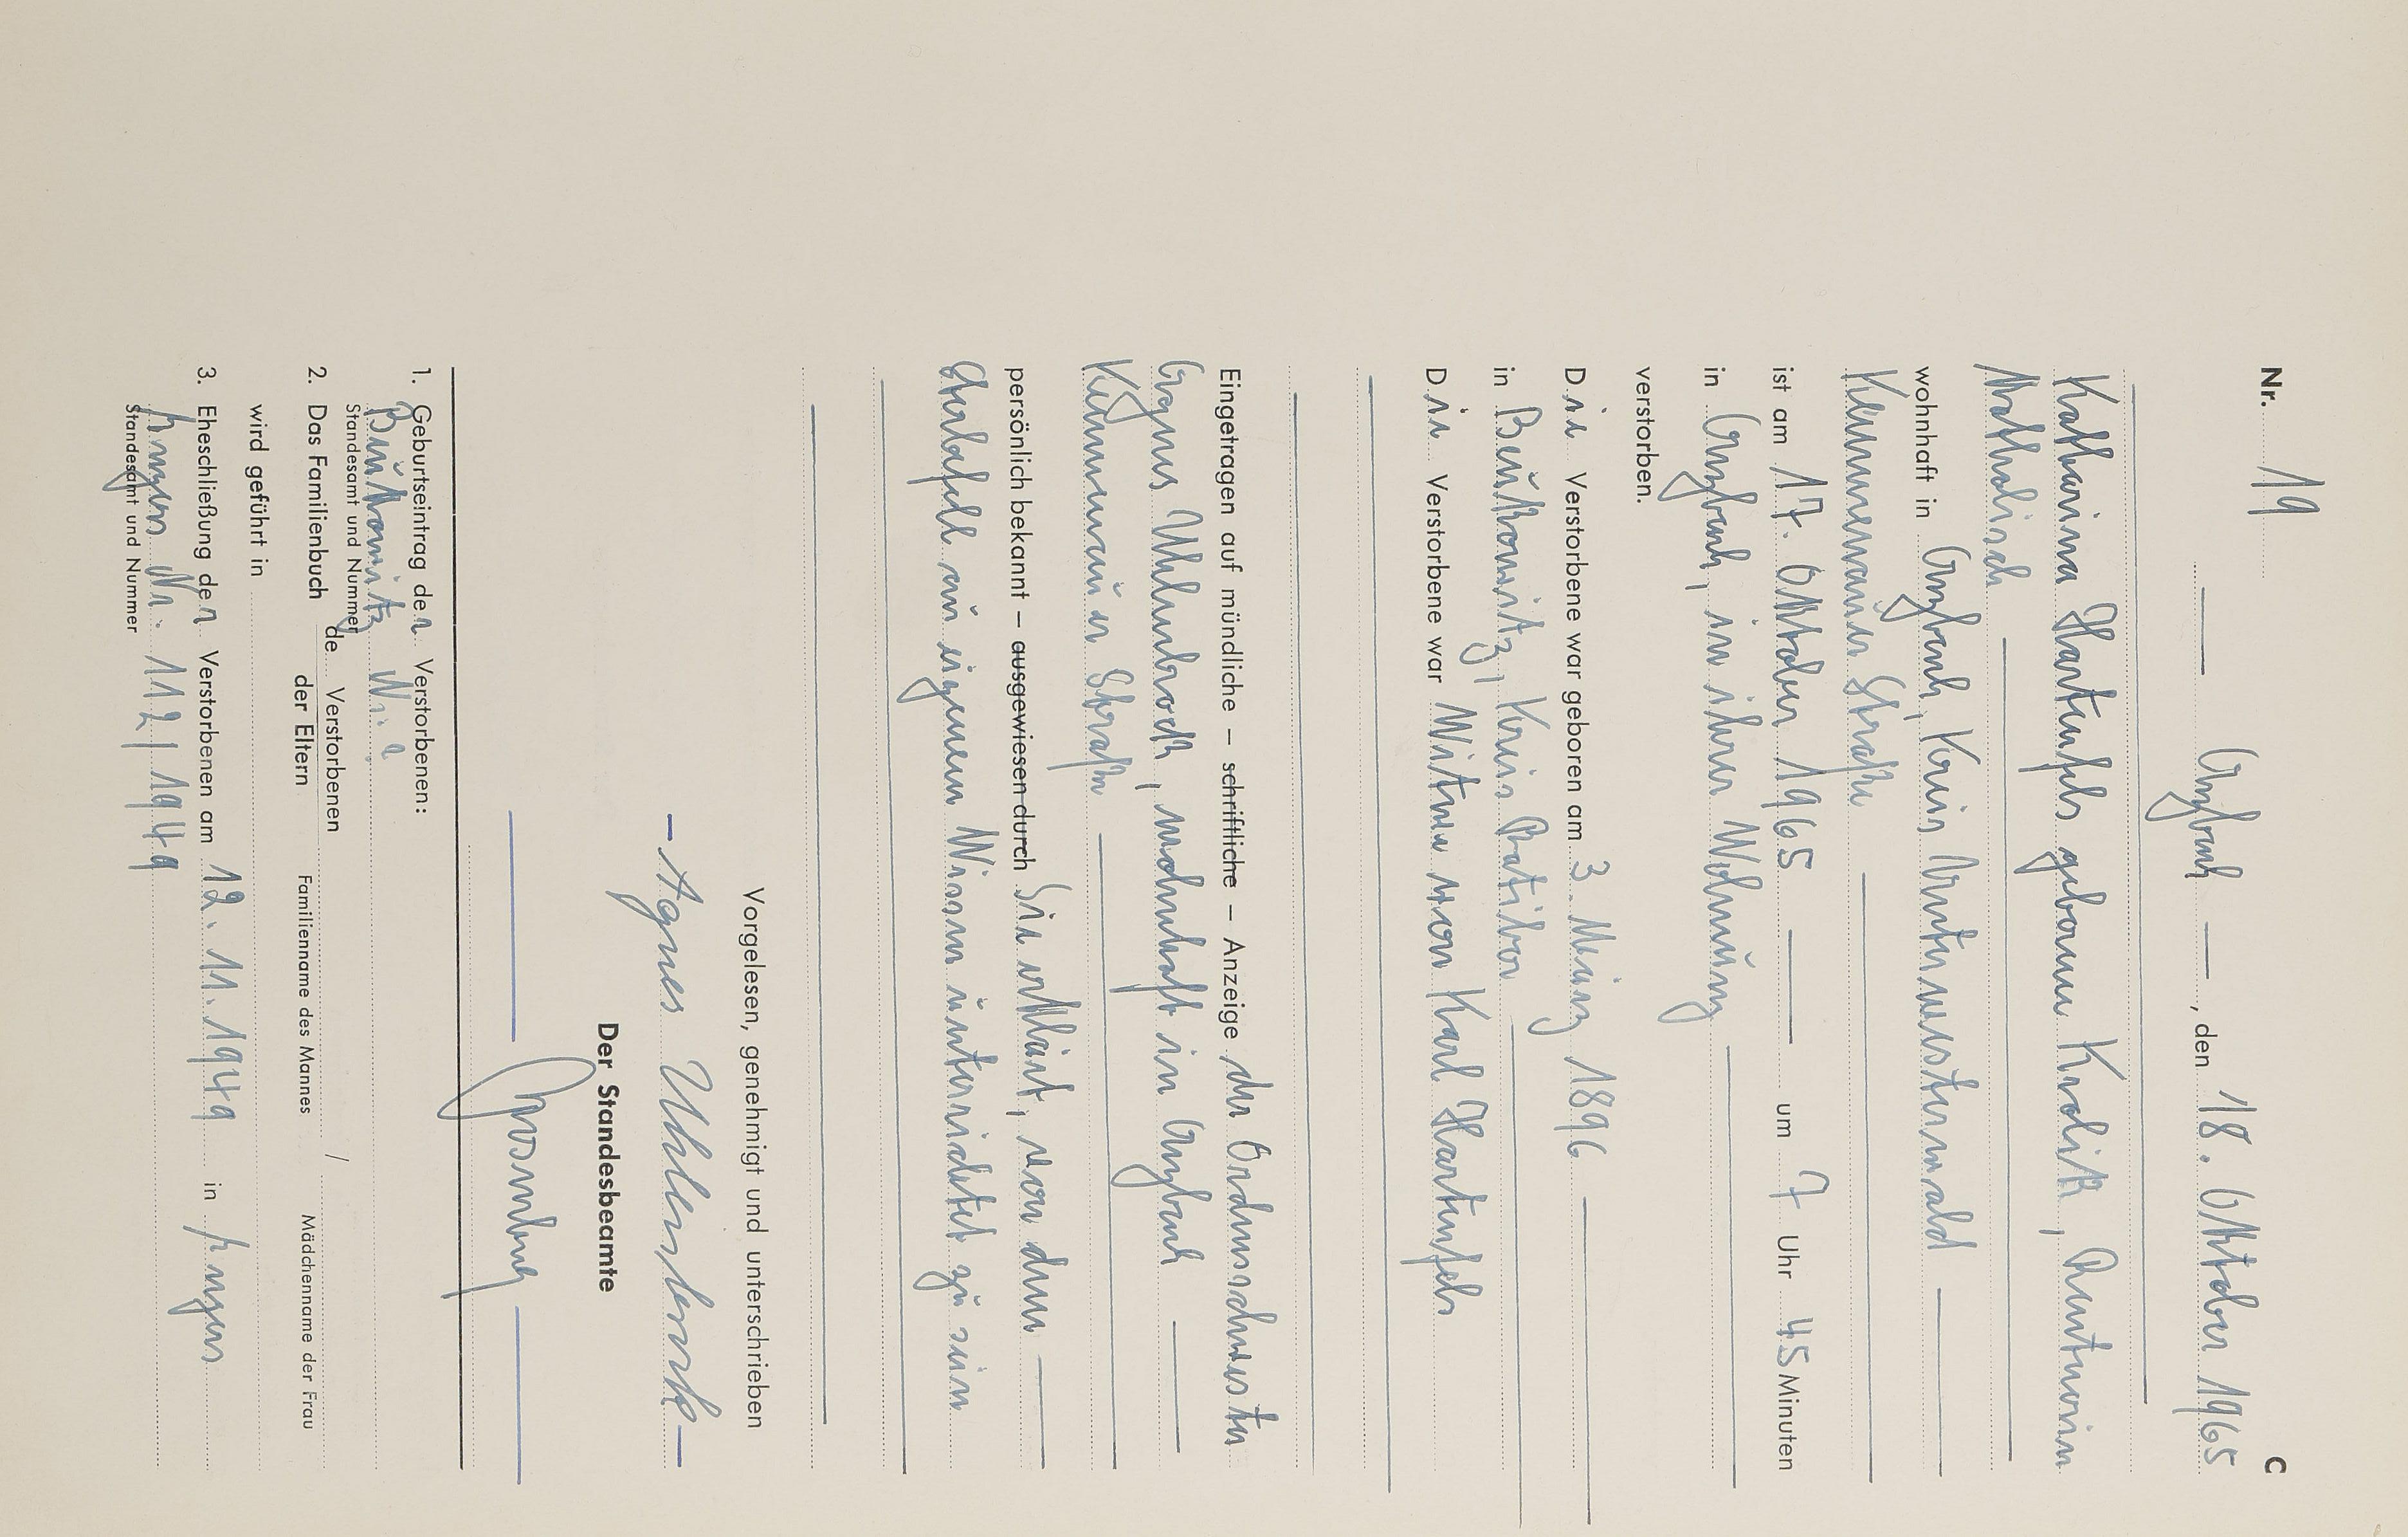 Nr. 19 C
Asbach —, den 18. Oktober 1965
Katharina Hartenfels geborene Krolik, Rentnerin
katholisch
wohnhaft in Asbach, Kreis Unterwesterwald
Klemenauer Straße
ist am 17. Oktober 1965 — um 7 Uhr 45 Minuten
in Asbach, in ihrer Wohnung
verstorben.
Die Verstorbene war geboren am 3. März 1896
in Benkowitz, Kreis Ratibor
Die Verstorbene war Witwe von Karl Hartenfels
Eingetragen auf mündliche – schriftliche – Anzeige der Ordensschwester
Agnes Uhlenbrock, wohnhaft in
Straße
persönlich bekannt – ausgewiesen durch Sie erklärt, von dem
Sterbefall aus eigenem Wissen unterrichtet zu sein
Vorgelesen, genehmigt und unterschrieben
– Agnes Uhlenbrock –
Der Standesbeamte
1. Geburtseintrag der Verstorbenen:
Benkowitz Nr. ?
Standesamt und Nummer
2. Das Familienbuch de Verstorbenen / der Eltern
Familienname des Mannes Mädchenname der Frau
wird geführt in
3. Eheschließung der Verstorbenen am 12. 11. 1949 in
Nr. 112/1949
Standesamt und Nummer